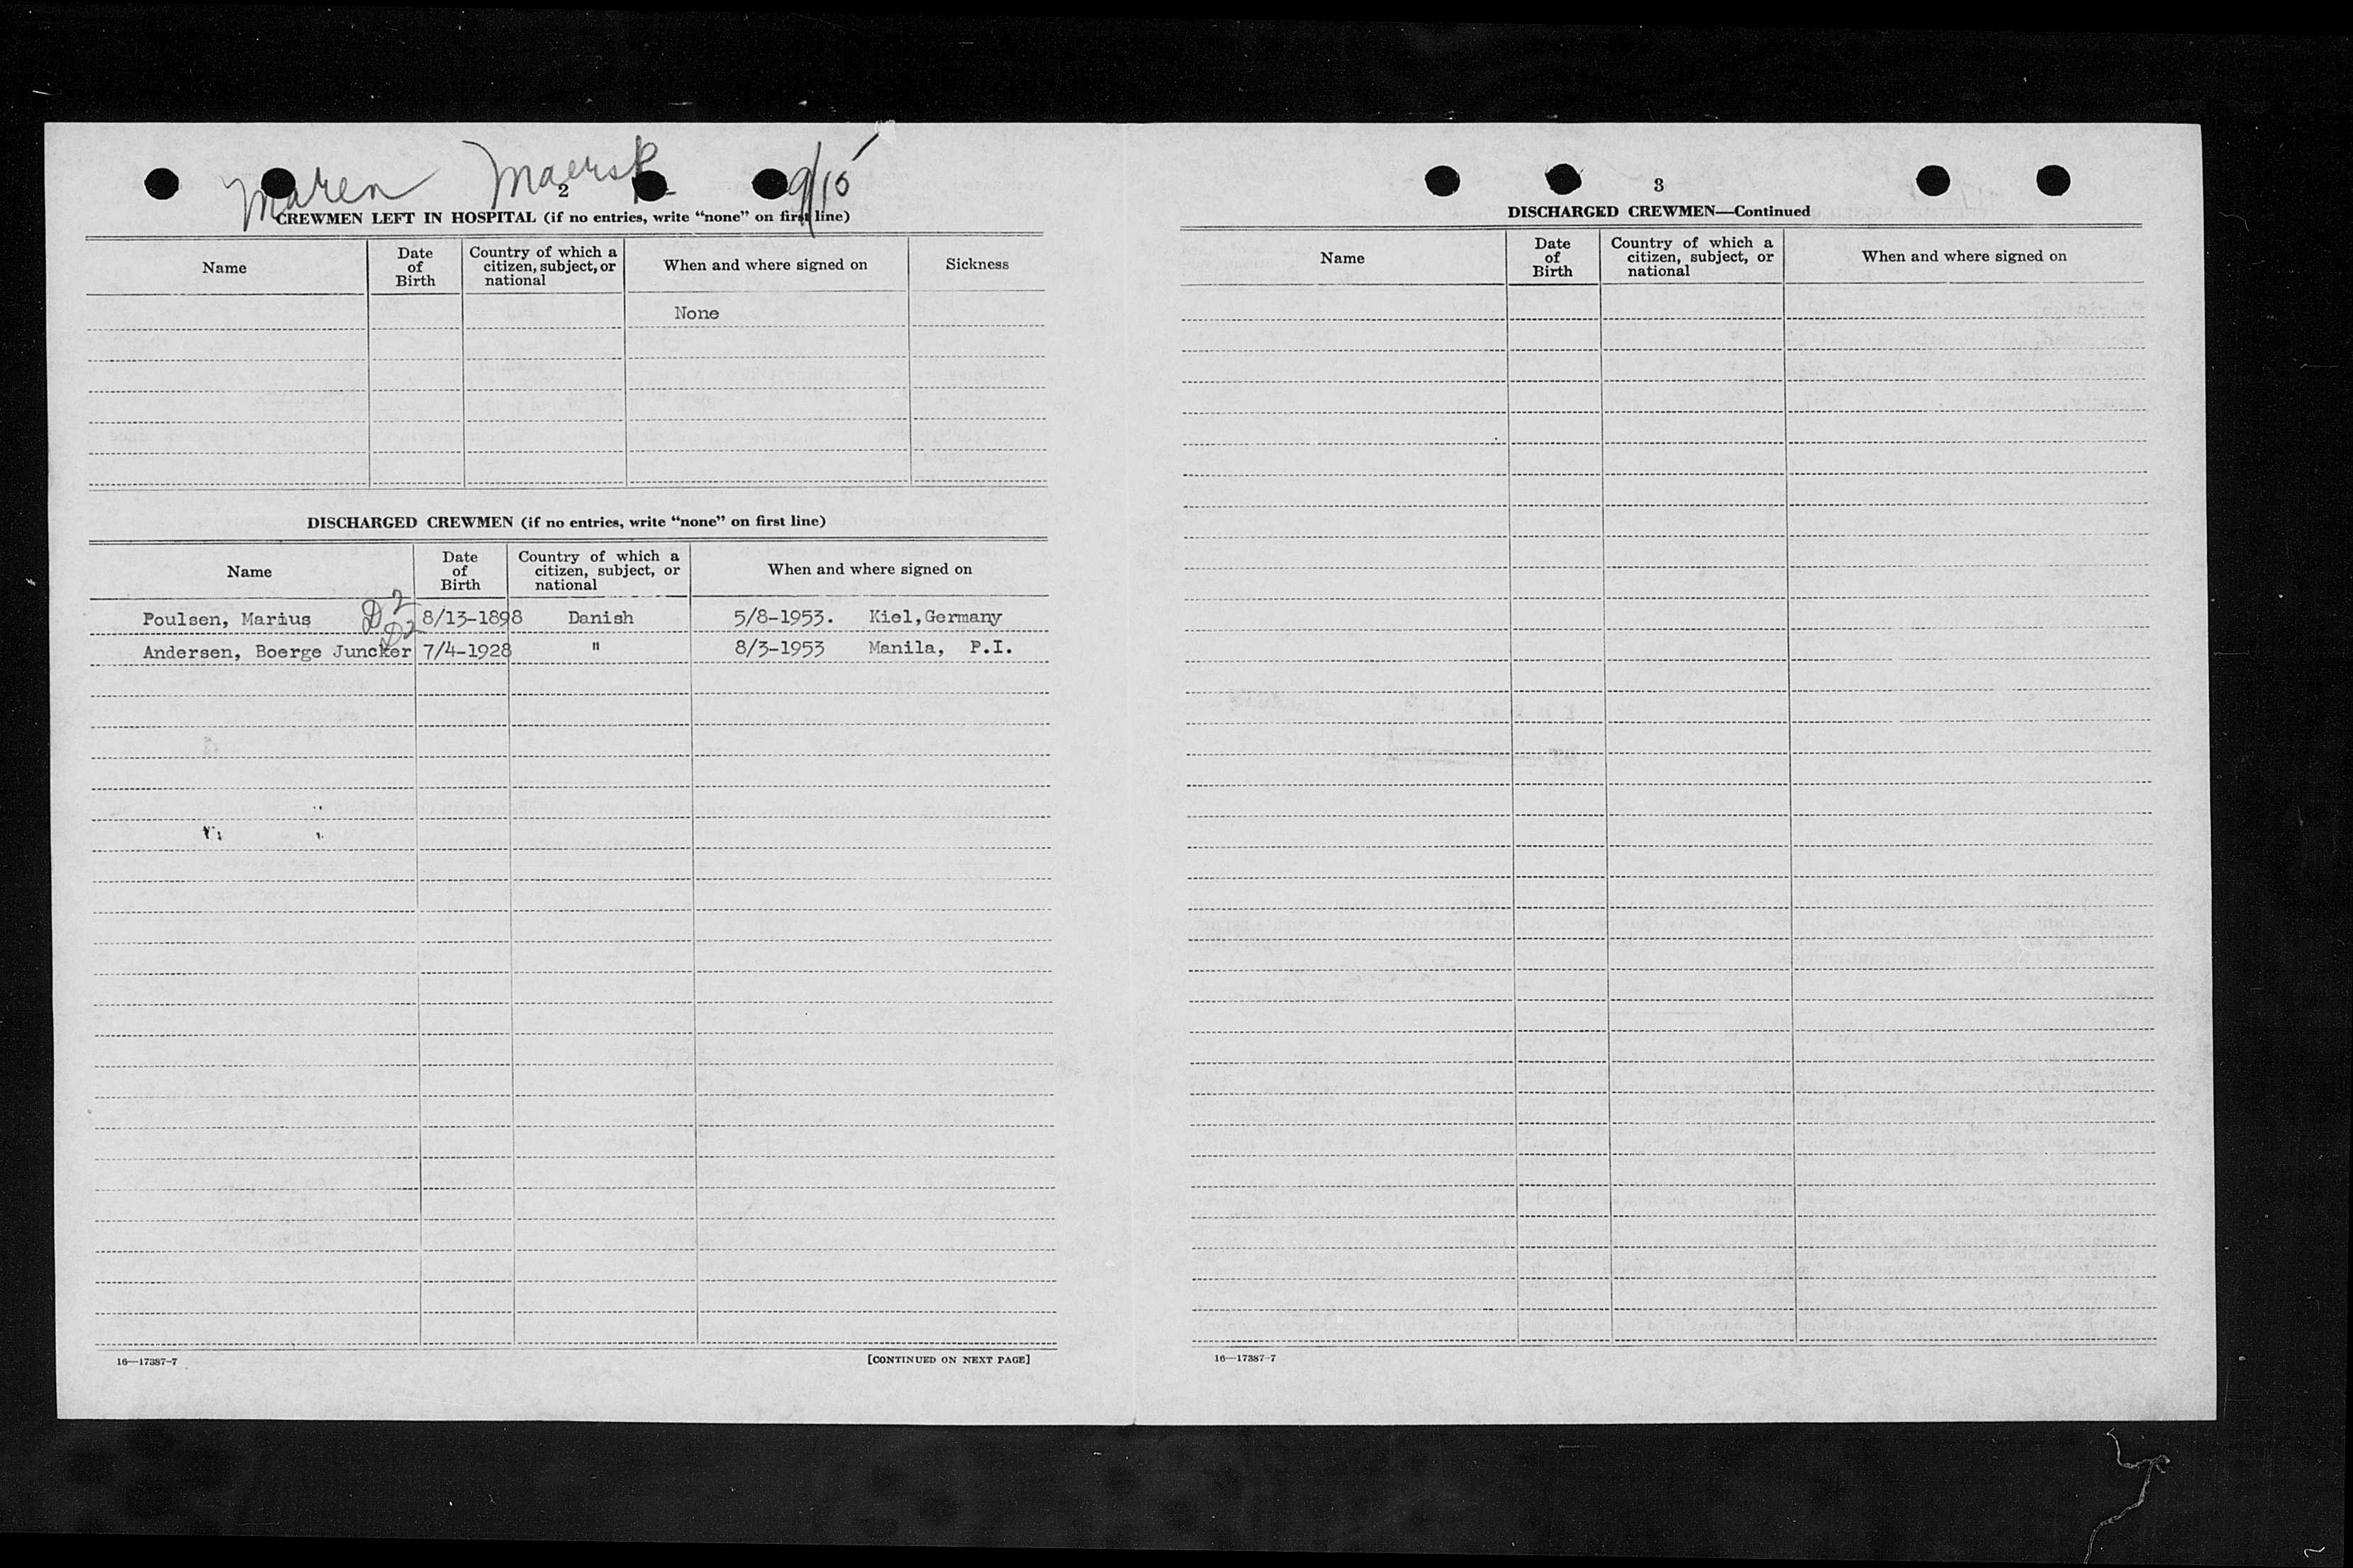 Maren Maersk 9/15
2
CREWMEN LEFT IN HOSPITAL (if no entries, write “none” on first line)
Name Date of Birth Country of which a citizen, subject, or national When and where signed on Sickness
None
DISCHARGED CREWMEN (if no entries, write “none” on first line)
Name Date of Birth Country of which a citizen, subject, or national When and where signed on
Poulsen, Marius D2 8/13-1898 Danish 5/8-1953. Kiel,Germany
Andersen, Boerge Juncker D2 7/4-1928 " 8/3-1953 Manila, P.I.
16—17387-7 [CONTINUED ON NEXT PAGE]
3
DISCHARGED CREWMEN—Continued
Name Date of Birth Country of which a citizen, subject, or national When and where signed on
16—17387-7